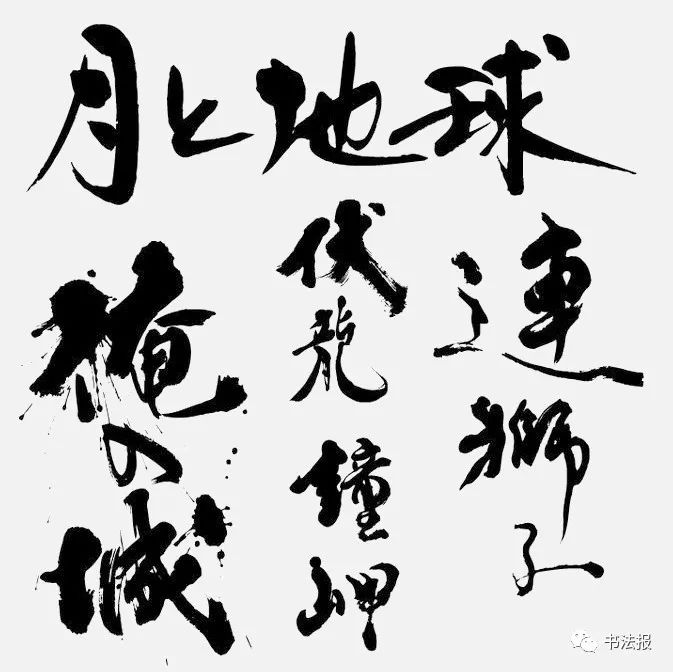 月と地球
連獅子
伏龍
鐘岬
俺の城
书法报